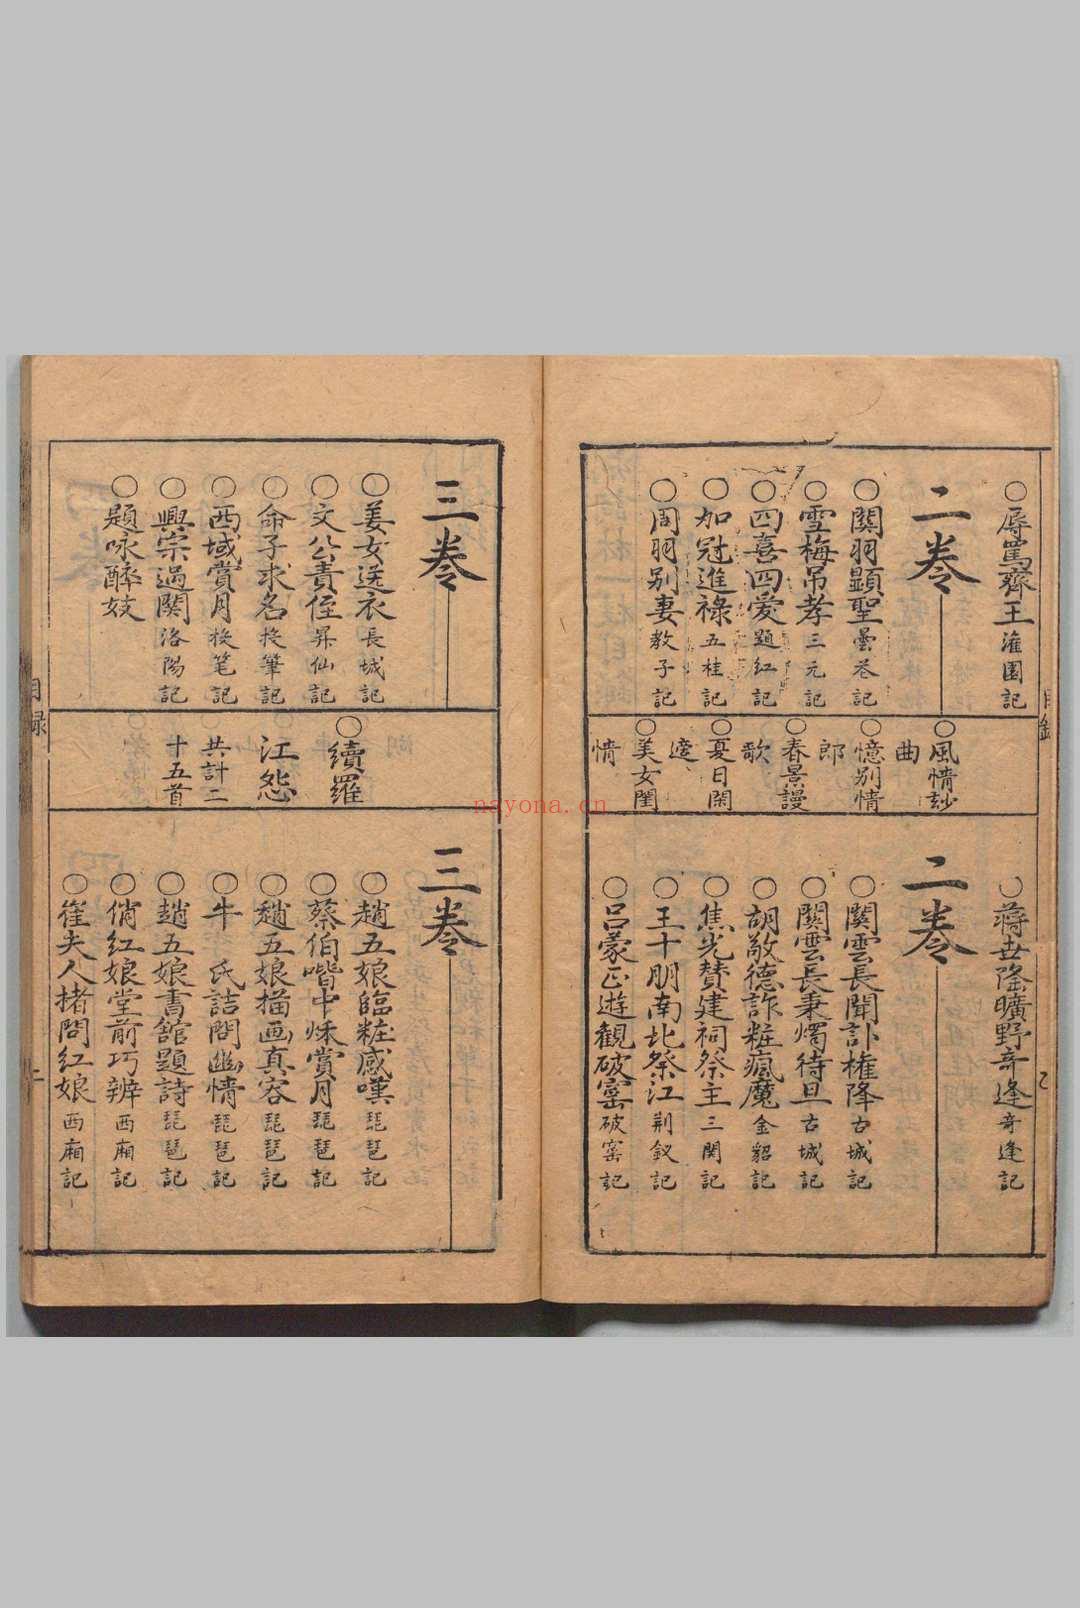 ○辱罵齊王 灌園記
二卷
○關羽顯聖 曇花記
○雪梅吊孝 三元記
○四喜四愛 題紅記
○加冠進祿 五桂記
○周羽別妻 教子記
○風情玅
曲
○憶別情
郎
○春景謾
歌
○夏日閑
○美女閨
情
○蔣世隆曠野奇逢 奇逢記
二卷
○關雲長聞訃權降 古城記
○關雲長秉燭待旦 古城記
○胡敬德詐粧瘋魔 金貂記
○焦光贊建祠祭主 三關記
○王十朋南北祭江 荆釵記
○呂蒙正遊觀破窰 破窑記
目録
三卷
○姜女送衣 長城記
○文公責侄 昇仙記
○命子求名 投筆記
○西域賞月 投笔記
○興宗過關 洛陽記
○題咏醉妓
○續羅
江怨
共計二
十五首
三卷
○趙五娘臨粧感嘆 琵琶記
○蔡伯喈中秌賞月 琵琶記
○趙五娘描画真容 琵琶記
○牛氏詰問幽情 琵琶記
○趙五娘書舘題詩 琵琶記
○俏红娘堂前巧辨 西廂記
○崔夫人拷問紅娘 西廂記
目録
nayona.cn